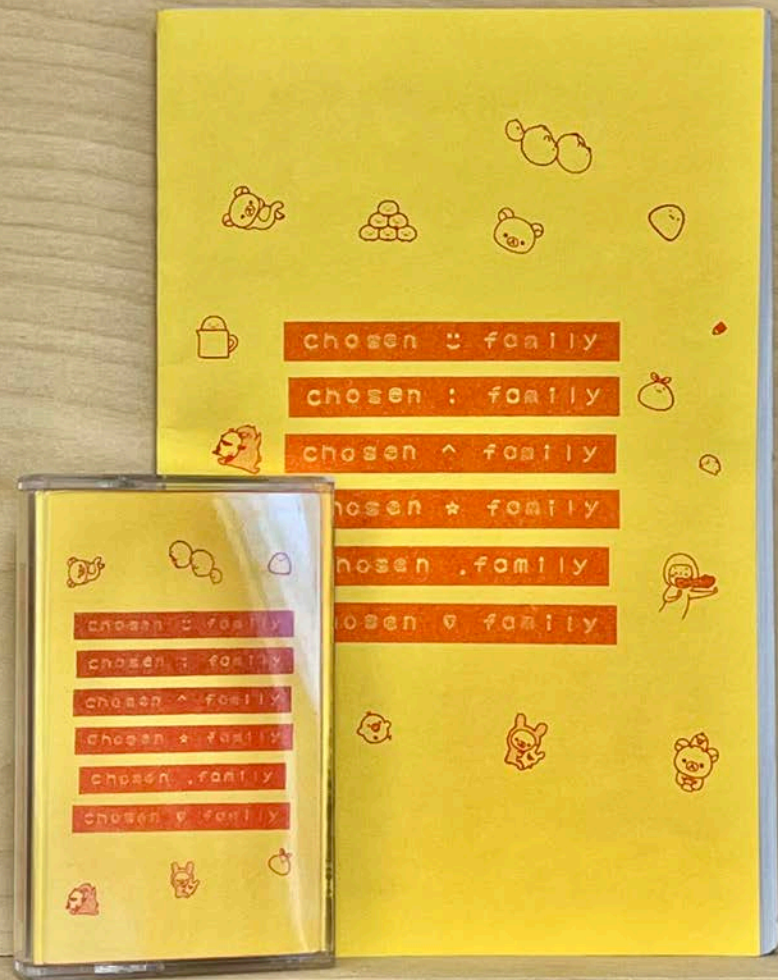 chosen ツ family
chosen : family
chosen ^ family
hosen ☆ family
hosen .family
osen ♡ family
chosen ツ family
chosen : family
chosen ^ family
chosen ☆ family
chosen .family
chosen ♡ family